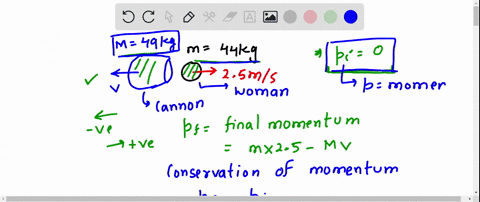 M = 49kg
m = 44kg
* Pi = 0
2.5m/s
V
woman
p = momer
cannon
-ve
+ve
Pf = final momentum
= m×2.5 - MV
Conservation of momentum